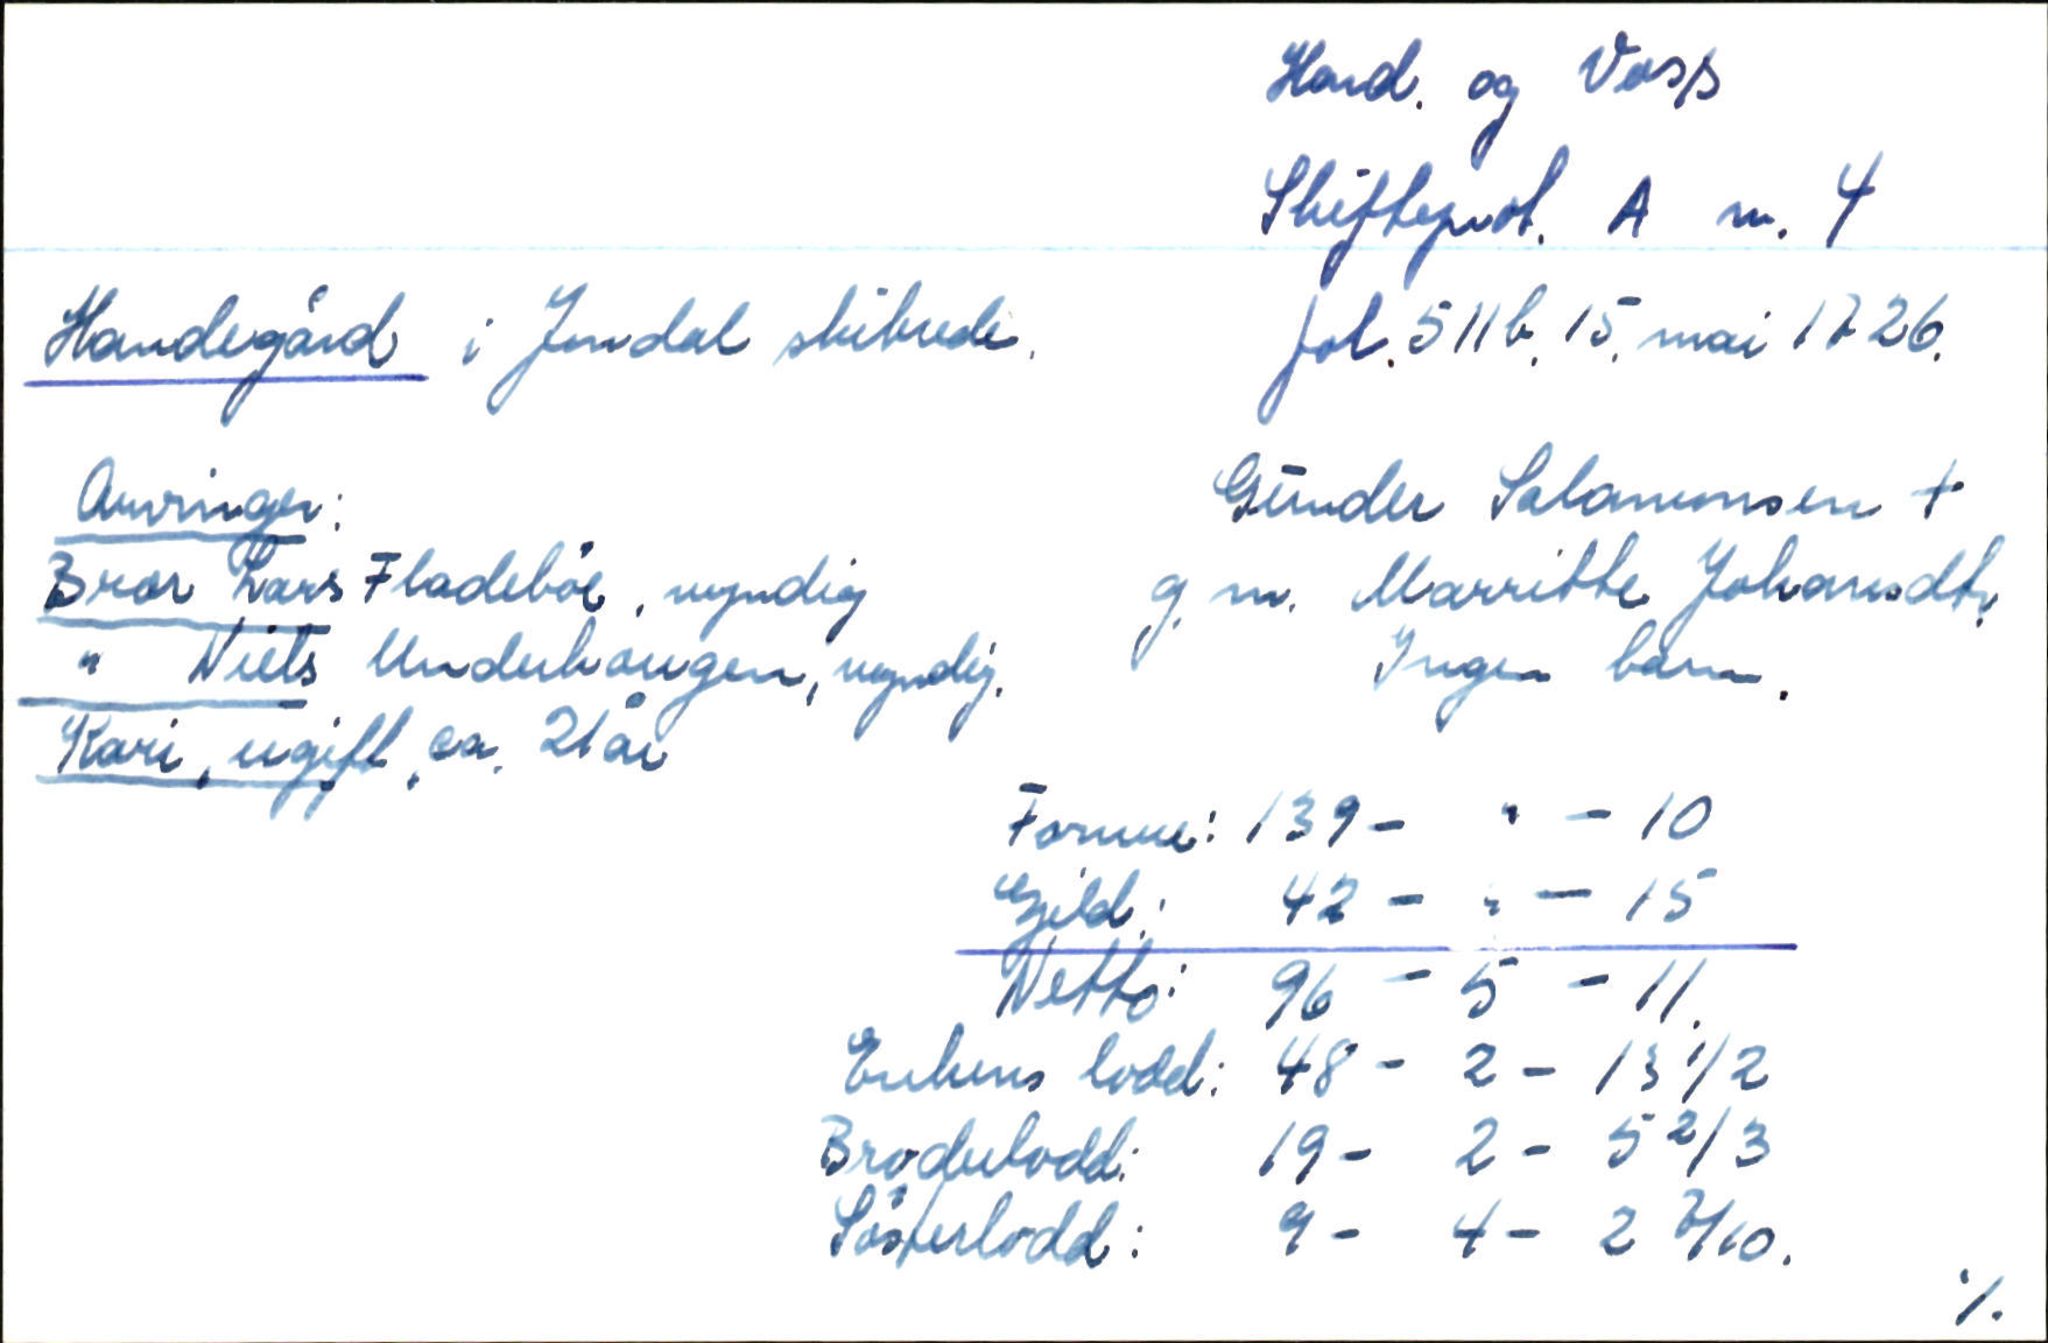 Hard. og Voss
Skifteprot. A nr. 4
Handegård i Jondal skibrede. fol. 511b. 15. mai 1726.
Arvinger:
Bror Lars Fladebö, myndig
" Niels Underhaugen, myndig.
Kari, ugift, ca. 21 år
Gunder Salamonsen +
g. m. Marritte Johansdtr.
Ingen barn.
Formue: 139 - " - 10
Gjeld: 42 - " - 15
Netto: 96 - 5 - 11.
Enkens lodd: 48 - 2 - 13 1/2
Broderlodd: 19 - 2 - 5 2/3
Sösterlodd: 9 - 4 - 2 7/10.
·/.